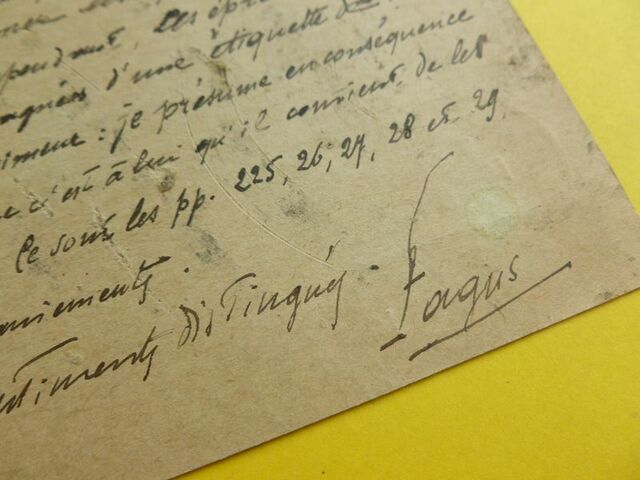 les épre
pendant,
d'une étiquette de
: je présume en conséquence
c'est à lui qu'il convient de les
Ce sont les pp. 225, 26, 27, 28 et 29
niements.
timents distingués. Fagus